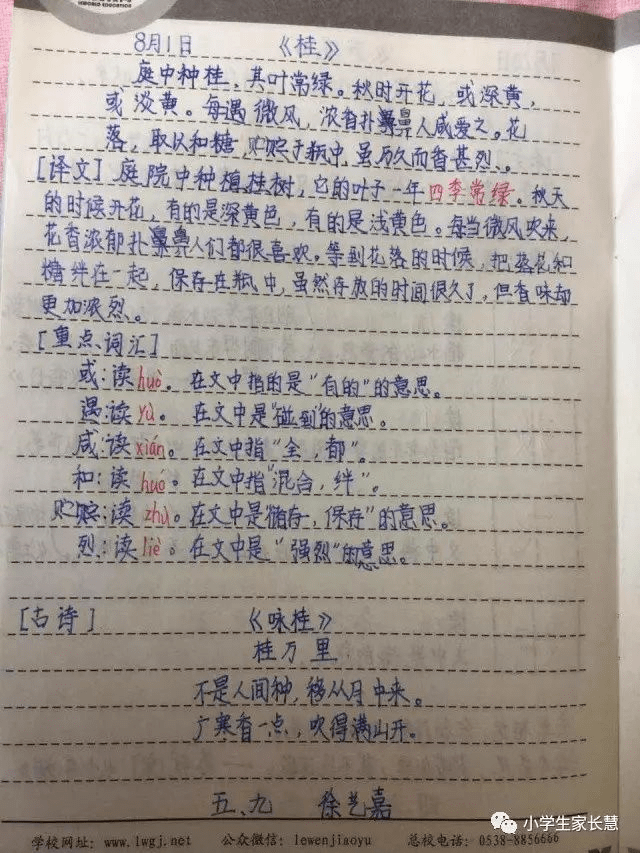 LEWORLD EDUCATION
8月1日 《桂》
庭中种桂,其叶常绿。秋时开花,或深黄,
或淡黄。每遇微风,浓香扑鼻人咸爱之。花
落,取以和糖,贮于瓶中,虽历久而香甚烈。
[译文] 庭院中种植桂树,它的叶子一年四季常绿。秋天
的时候开花,有的是深黄色,有的是浅黄色。每当微风吹来,
花香浓郁扑鼻人们都很喜欢。等到花落的时候,把落花和
糖绊在一起,保存在瓶中,虽然存放的时间很久了,但香味却
更加浓烈。
[重点词汇]
或:读huò。在文中指的是“有的”的意思。
遇:读yù。在文中是“碰到”的意思。
咸:读xián。在文中指“全,都”。
和:读huó。在文中指“混合,绊”。
贮:读zhù。在文中是“储存,保存”的意思。
烈:读liè。在文中是“强烈”的意思。
[古诗] 《咏桂》
桂万里
不是人间种,移从月中来。
广寒香一点,吹得满山开。
五、九 徐艺嘉
小学生家长慧
学校网址:www.lwgj.net 公众微信:lewenjiaoyu 总校电话:0538-8856666